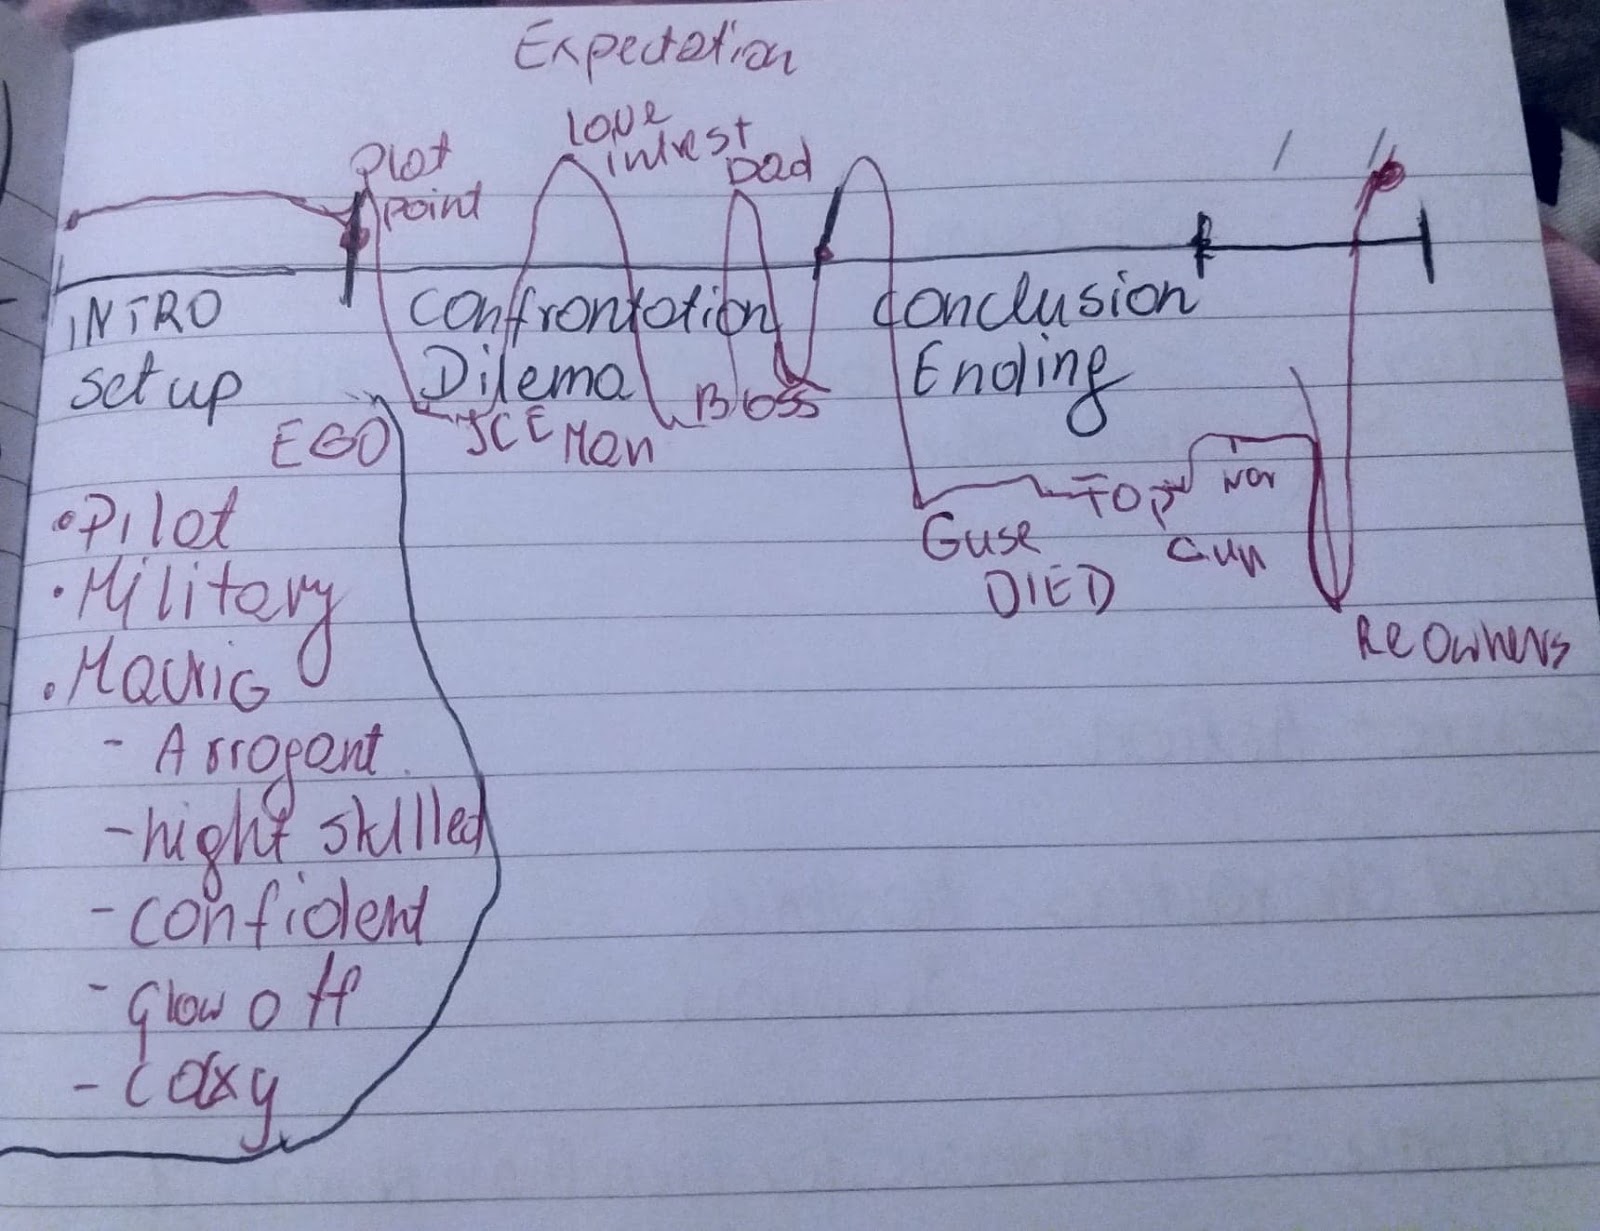 Expectation
Love
intrest
Plot
point
Dad
INTRO
Confrontation
Conclusion
set up
Dilema
Ending
EGO
ICE Man
Boss
TOP
Gun
Guse
DIED
• Pilot
• Military
Re Owners
- Arrogent
- hight skilled
- confident
- Glow off